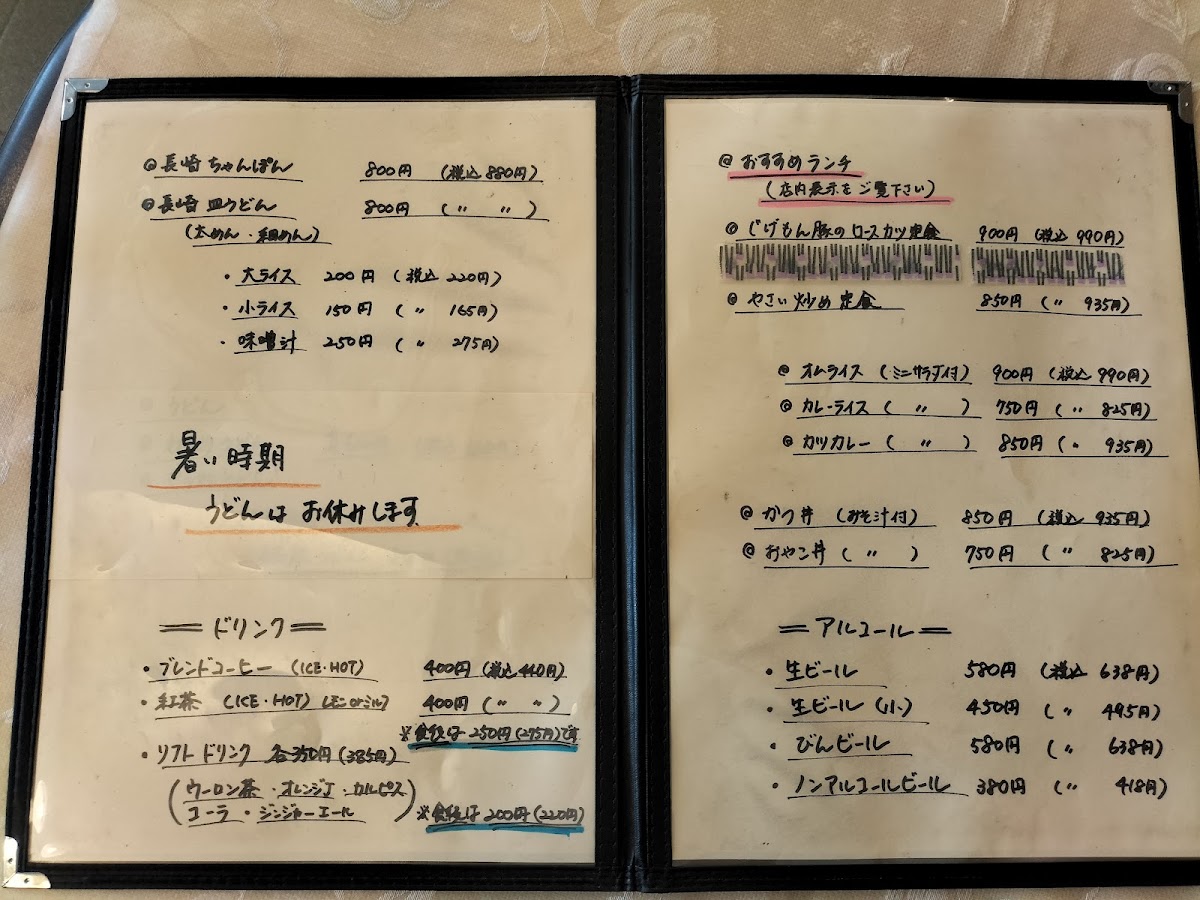 ◎長崎ちゃんぽん 800円 (税込880円)
◎長崎皿うどん 800円 (〃 〃)
(太めん・細めん)
・大ライス 200円 (税込220円)
・小ライス 150円 (〃 165円)
・味噌汁 250円 (〃 275円)
暑い時期
うどんはお休みします
＝ドリンク＝
・ブレンドコーヒー (ICE・HOT) 400円 (税込440円)
・紅茶 (ICE・HOT) レモンorミルク 400円 (〃 〃)
※食後は250円(275円)です
・ソフトドリンク 各350円(385円)
(ウーロン茶・オレンジJ・カルピス
コーラ・ジンジャーエール)
※食後は200円(220円)
◎おすすめランチ
(店内表示をご覧下さい)
◎じげもん豚のロースカツ定食 900円 (税込990円)
◎やさい炒め定食 850円 (〃 935円)
◎オムライス (ミニサラダ付) 900円 (税込990円)
◎カレーライス (〃) 750円 (〃 825円)
◎カツカレー (〃) 850円 (〃 935円)
◎かつ丼 (みそ汁付) 850円 (税込935円)
◎おやこ丼 (〃) 750円 (〃 825円)
＝アルコール＝
・生ビール 580円 (税込638円)
・生ビール (小) 450円 (〃 495円)
・びんビール 580円 (〃 638円)
・ノンアルコールビール 380円 (〃 418円)